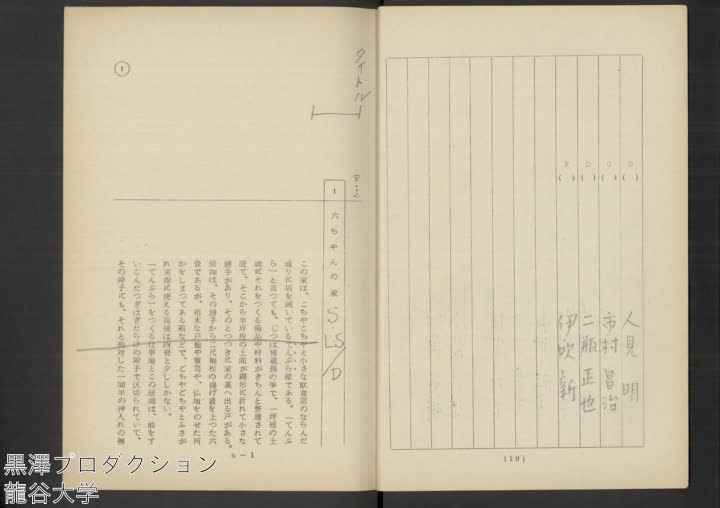 R D C B
( )( )( )( )
人見 明
市村 昌治
二瓶 正也
伊吹 新
(10)
タイトル
①
1 六ちゃんの家
S.
LS
D
この家は、こちやこちやと小さな飲食店のならんだ
通りに店を開いているてんぷら屋である。「てんぷ
ら」と言つても、じつは精進揚の事で、一坪程の土
間にそれをつくる備品や材料がきちんと整理されて
居て、そこから半坪程の土間が鍵形に折れて小さな
勝手があり、そのとつつきに家の裏へ出る戸がある。
居間は、その勝手から二尺幅程の揚げ蓋を上つた六
畳であるが、粗末な戸棚や箪笥や、仏壇をのせた何
かをしまつてある箱などで、ごちやごちやとふさが
れ実際に使える面積は四畳と少ししかない。
「てんぷら」をつくる仕事場とこの居間は、油をす
いこんだつぎはぎだらけの障子で区切られていて、
その障子にも、それと相対した一間半の押入れの襖
6—1
黒澤プロダクション
龍谷大学